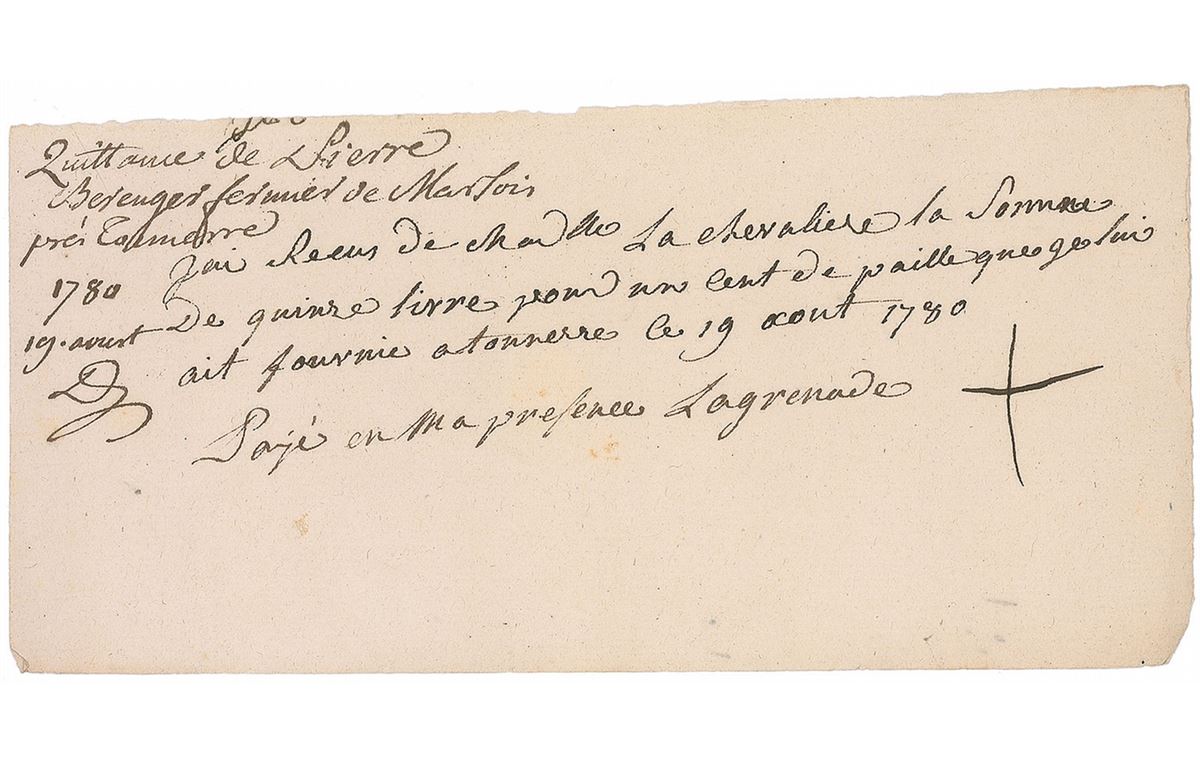 Quittance de Pierre
Berenger fermier de Marsois
près Tonnerre
1780
19. aoust
Jai Reçus de Madlle La chevaliere la Somme
De quinze livre pour un Cent de paille que ge lui
ait fournie a tonnerre le 19 aout 1780
Payé en Ma presence Lagrenade